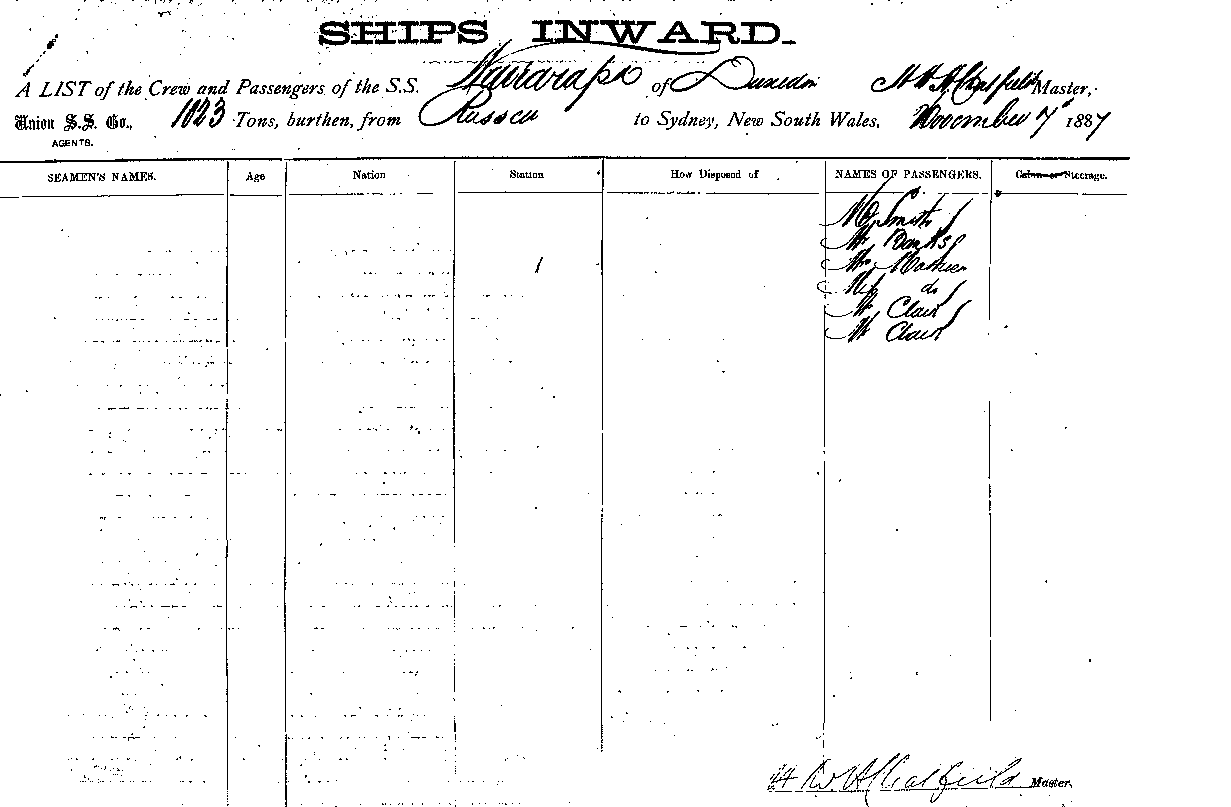 SHIPS INWARD.
A LIST of the Crew and Passengers of the S.S. Wairarapa of Dunedin H W H Chatfield Master,
Union S.S. Co., 1023 Tons, burthen, from to Sydney, New South Wales, November 7th 1887
AGENTS.
SEAMEN'S NAMES. Age Nation Station How Disposed of NAMES OF PASSENGERS. Cabin or Steerage.
Mr Smith
Mr Banks
Mrs
Miss do
Mr Clair
Mr Clair
H W H Chatfield Master.